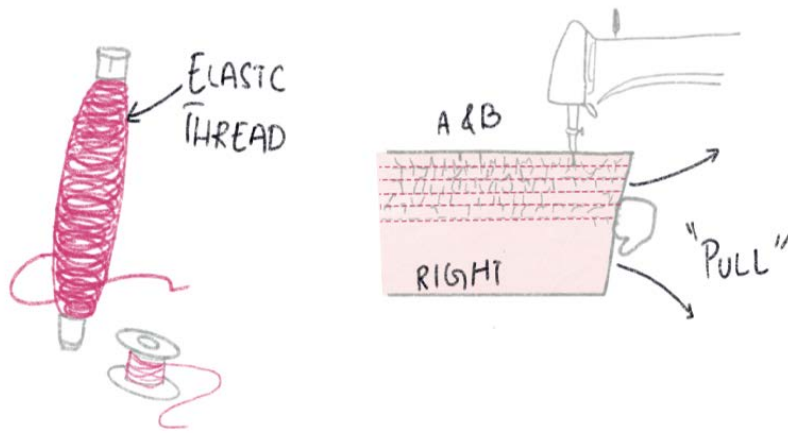 ELASTIC
THREAD
A & B
RIGHT
"PULL"